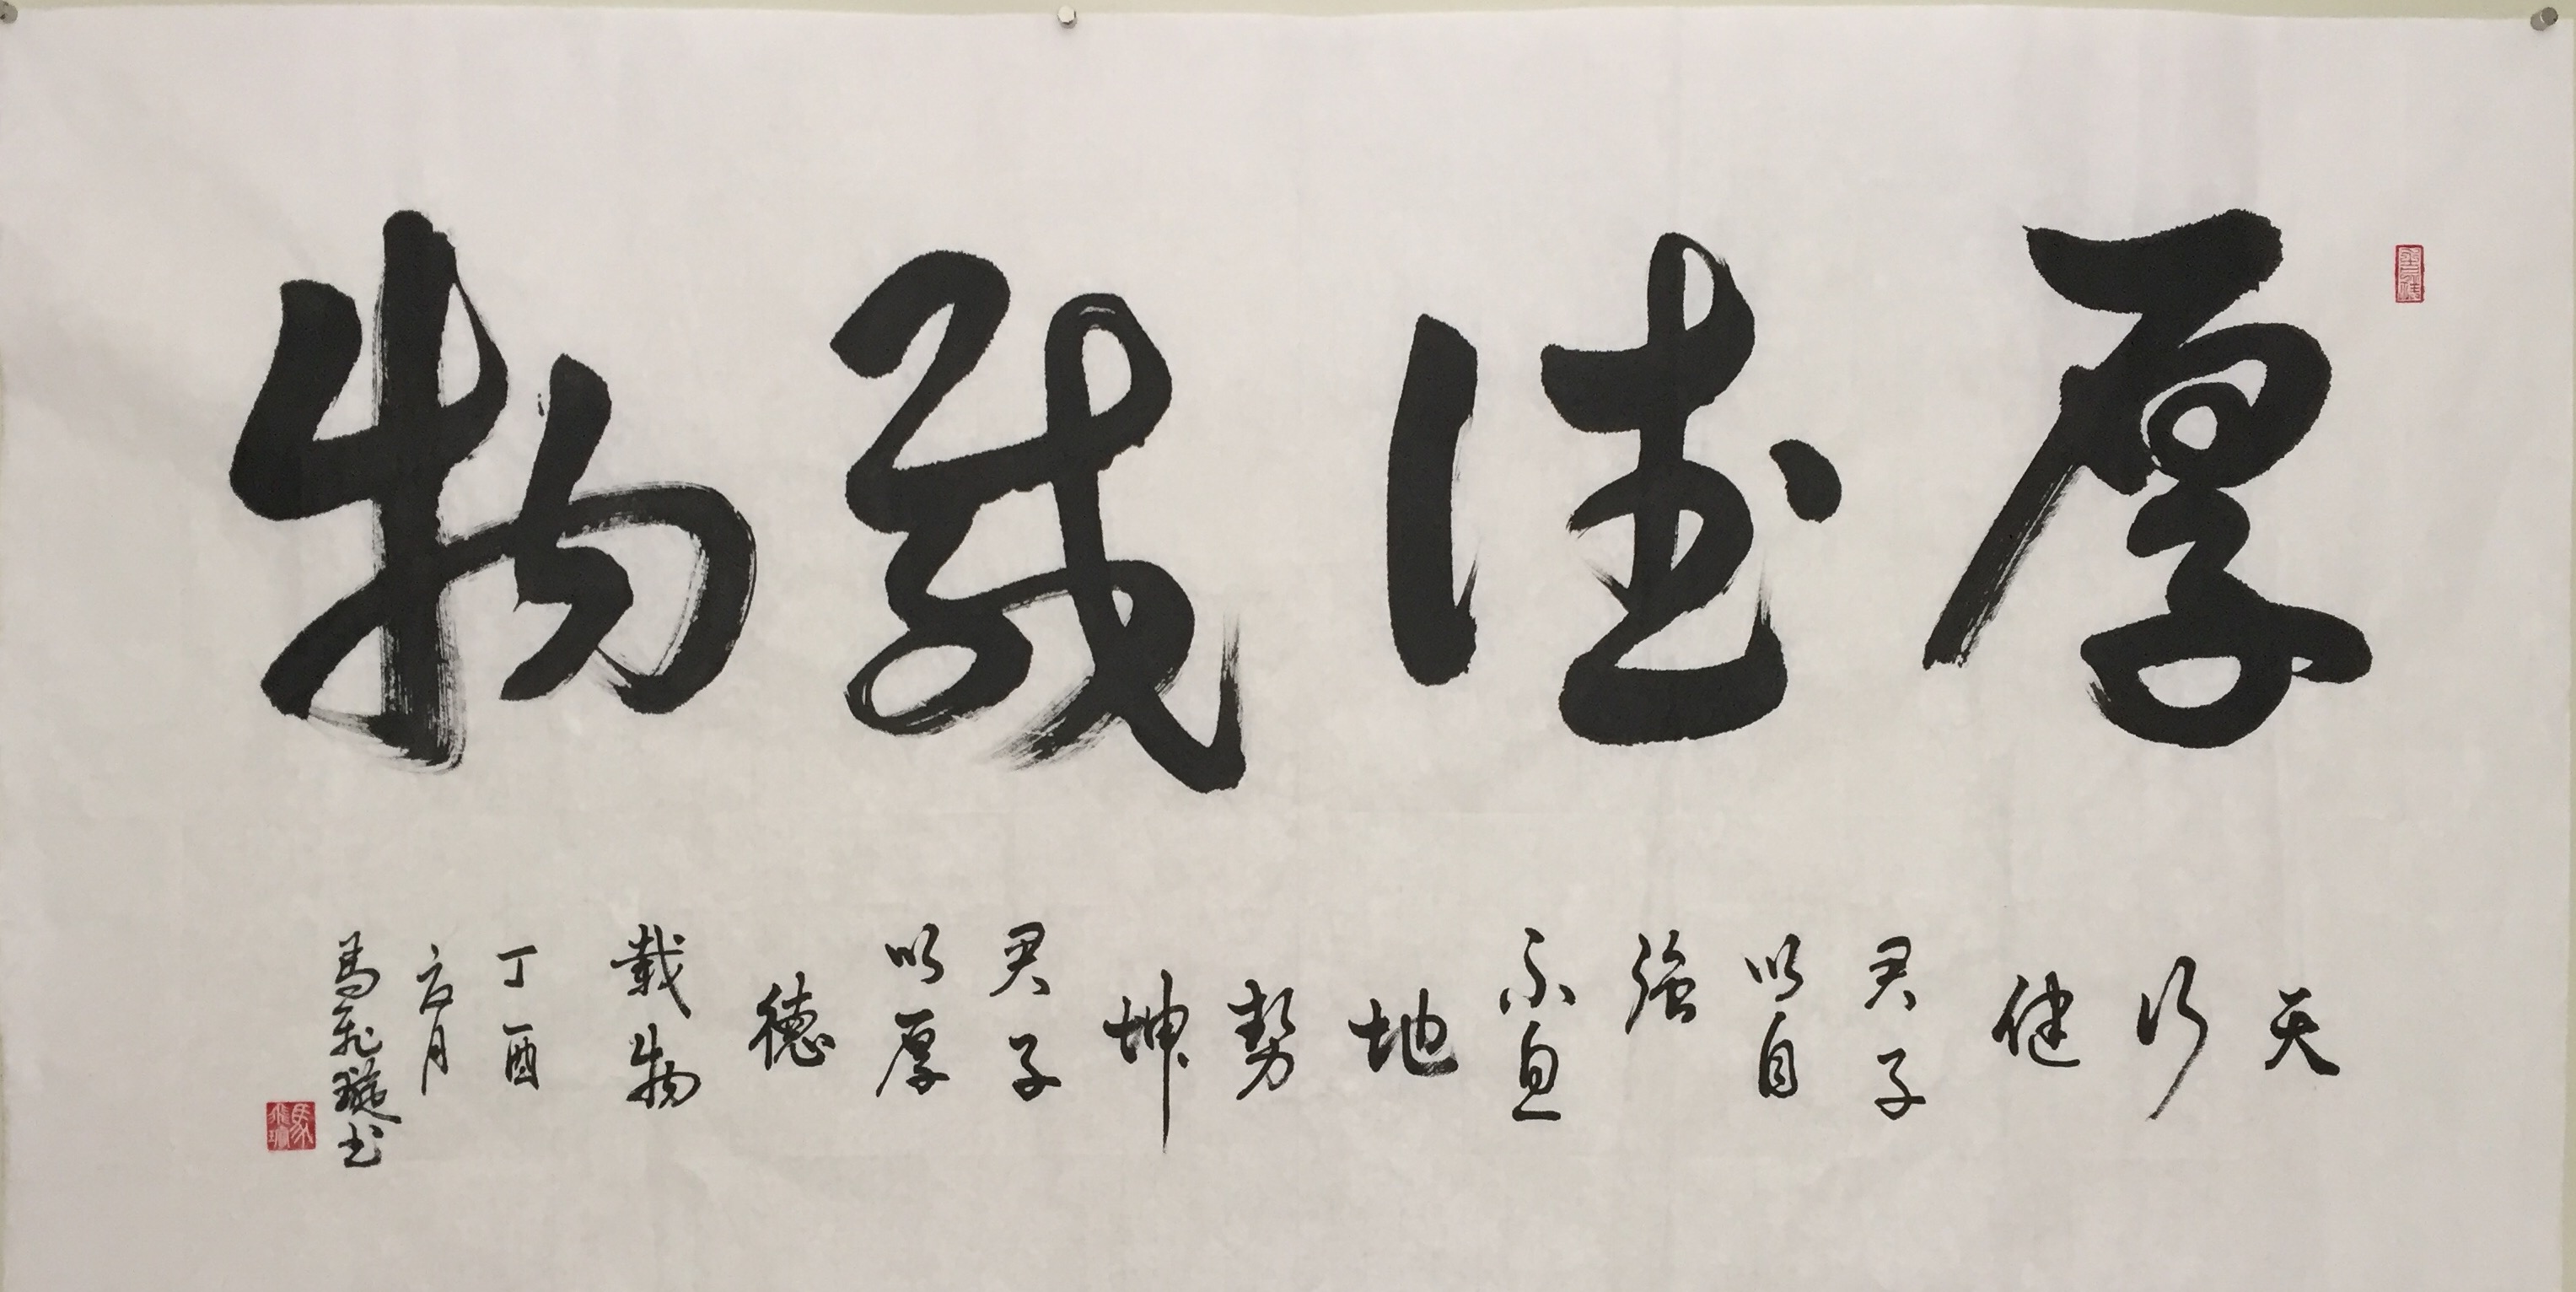 厚德载物
天
行
健
君子
以自
強
不息
地
勢
坤
君子
以厚
德
載物
丁酉
夏月
馬飛璇书